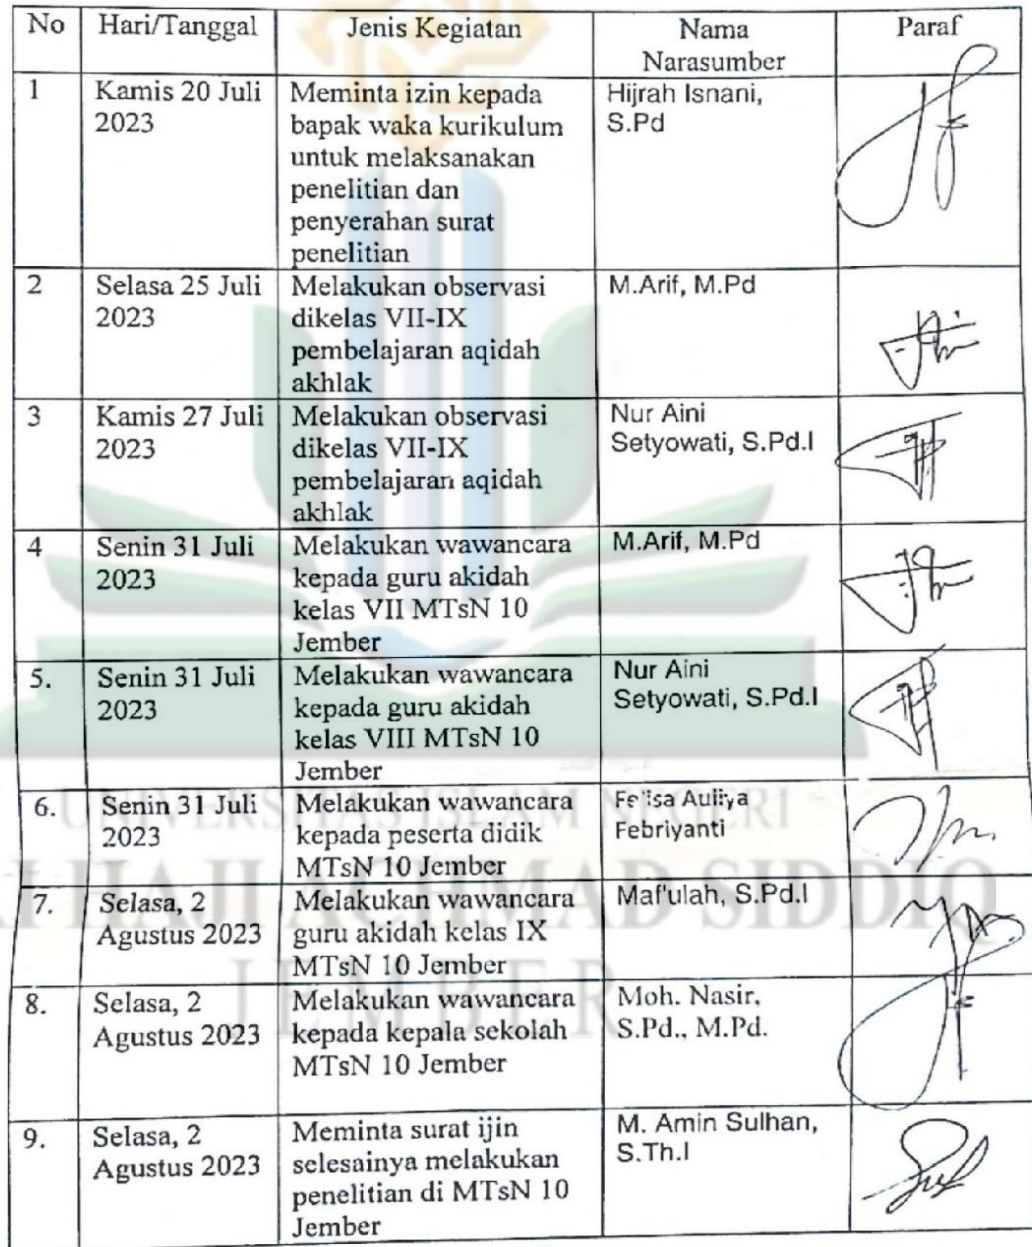 No Hari/Tanggal Jenis Kegiatan Nama Narasumber Paraf
1 Kamis 20 Juli 2023 Meminta izin kepada bapak waka kurikulum untuk melaksanakan penelitian dan penyerahan surat penelitian Hijrah Isnani, S.Pd
2 Selasa 25 Juli 2023 Melakukan observasi dikelas VII-IX pembelajaran aqidah akhlak M.Arif, M.Pd
3 Kamis 27 Juli 2023 Melakukan observasi dikelas VII-IX pembelajaran aqidah akhlak Nur Aini Setyowati, S.Pd.I
4 Senin 31 Juli 2023 Melakukan wawancara kepada guru akidah kelas VII MTsN 10 Jember M.Arif, M.Pd
5. Senin 31 Juli 2023 Melakukan wawancara kepada guru akidah kelas VIII MTsN 10 Jember Nur Aini Setyowati, S.Pd.I
6. Senin 31 Juli 2023 Melakukan wawancara kepada peserta didik MTsN 10 Jember Felisa Auliya Febriyanti
7. Selasa, 2 Agustus 2023 Melakukan wawancara guru akidah kelas IX MTsN 10 Jember Maf'ulah, S.Pd.I
8. Selasa, 2 Agustus 2023 Melakukan wawancara kepada kepala sekolah MTsN 10 Jember Moh. Nasir, S.Pd., M.Pd.
9. Selasa, 2 Agustus 2023 Meminta surat ijin selesainya melakukan penelitian di MTsN 10 Jember M. Amin Sulhan, S.Th.I
UNIVERSITAS ISLAM NEGERI
HAJI ACHMAD SIDDIQ
JEMBER